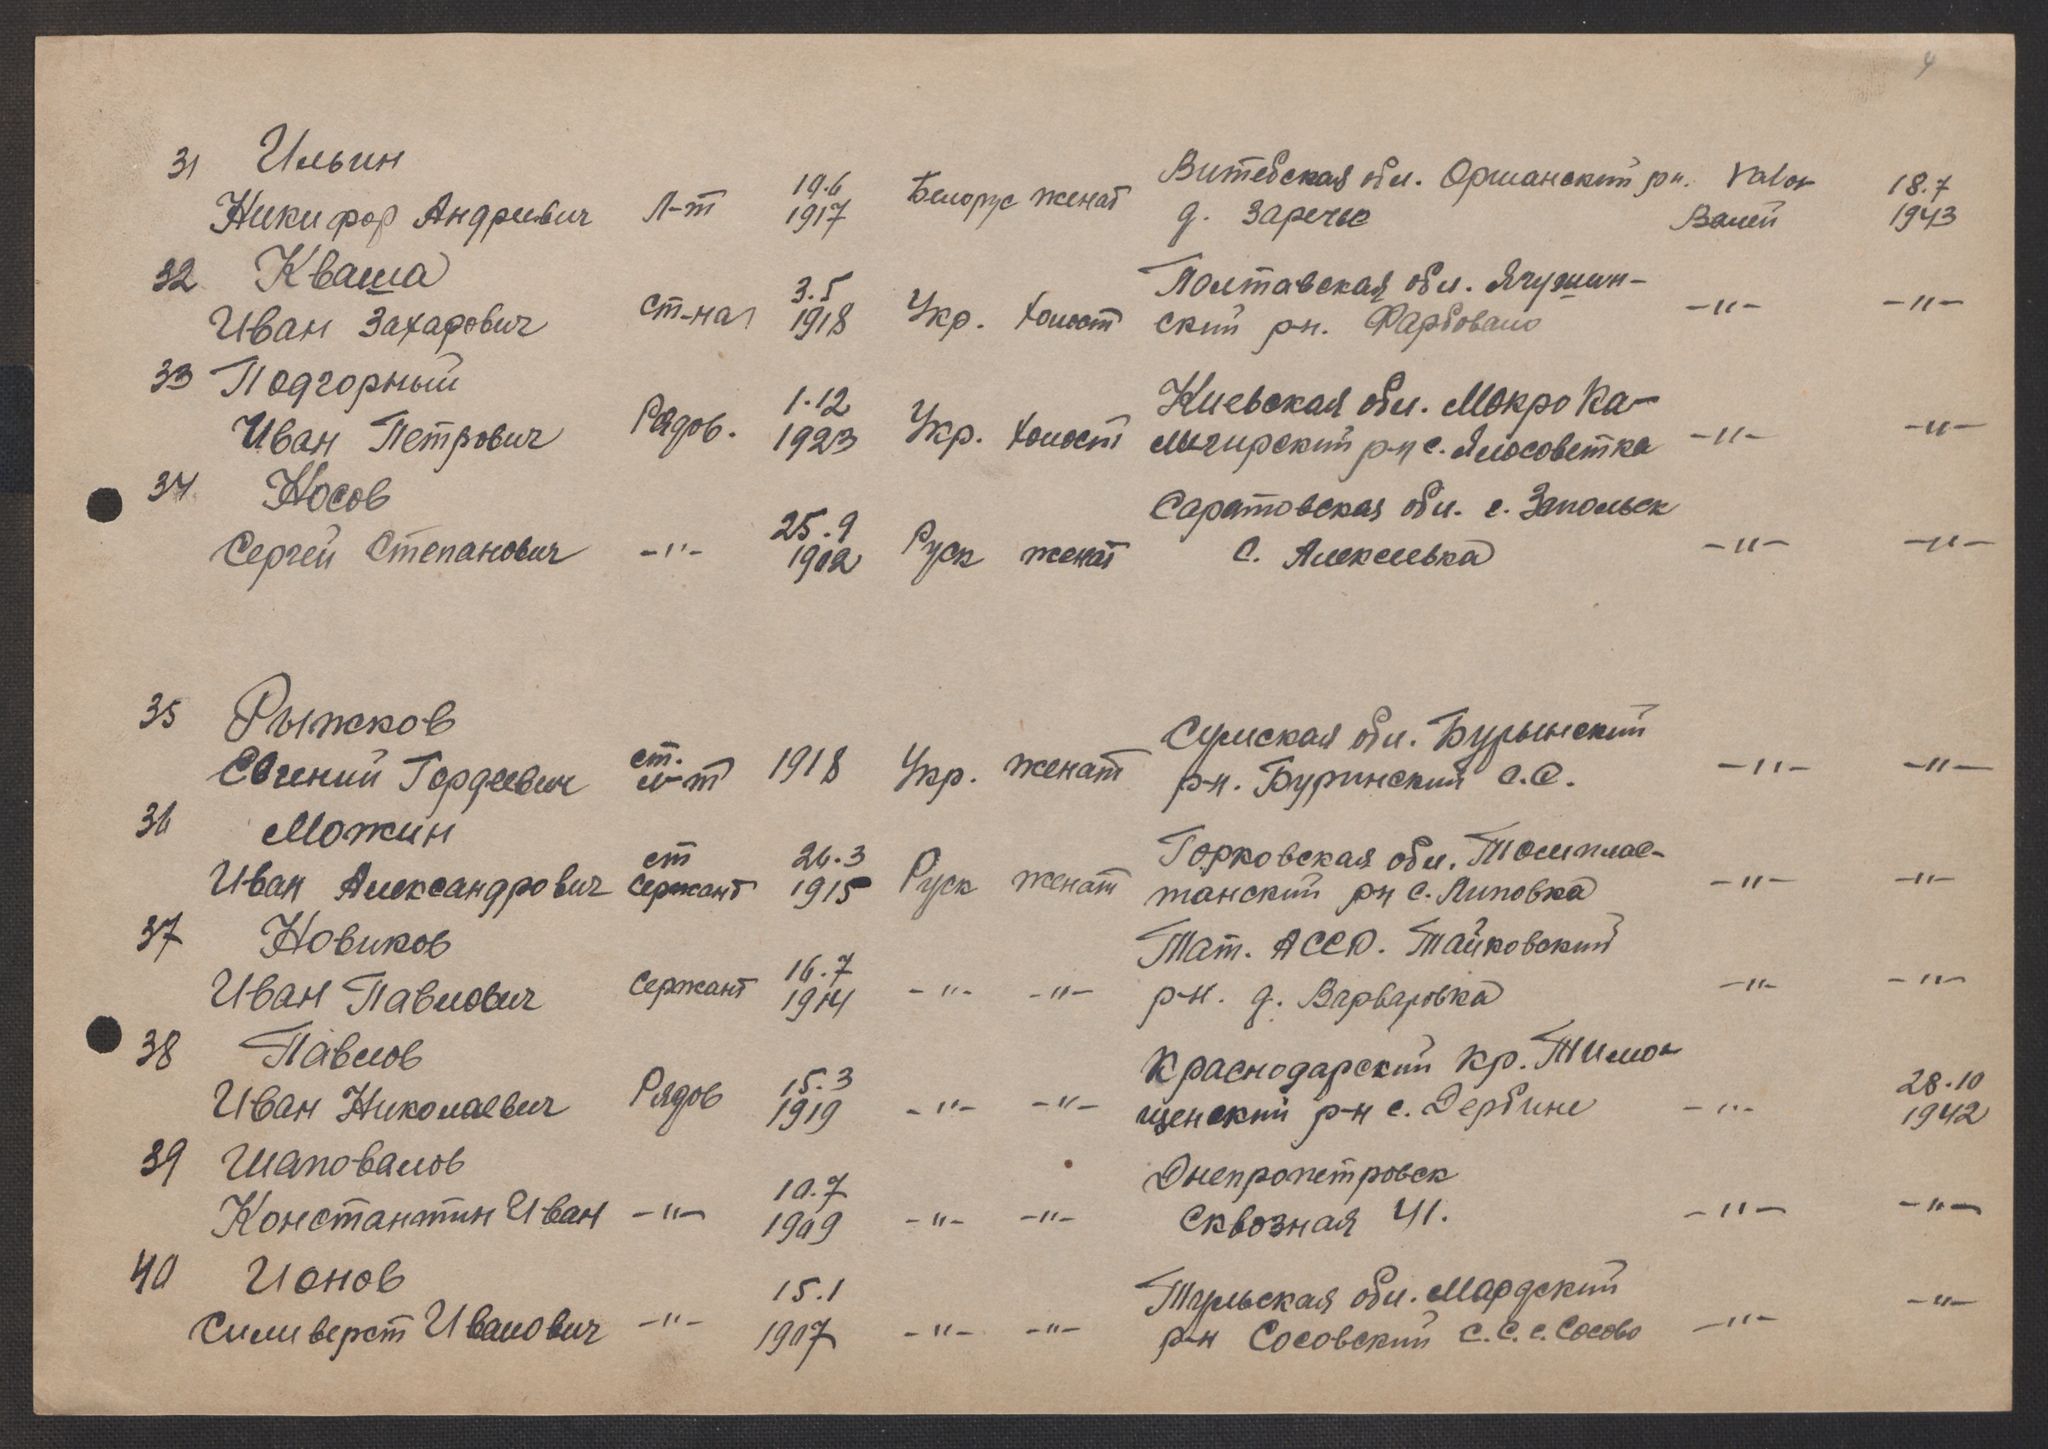 4
31 Ильин
Никифор Андреевич Л-т 19.6 1917 Белорус женат Витебская обл. Оршанский рн. д. Заречье Valer Валей 18.7 1943
32 Кваша
Иван Захарович ст-на 3.5 1918 Укр. холост Полтавская обл. Ячушин-
ский р-н. Фарбовано -"- -"-
33 Подгорный
Иван Петрович Рядов. 1.12 1923 Укр. холост Киевская обл. Мокро Ка-
лигирский р-н с. Ялосоветка -"- -"-
34 Носов
Сергей Степанович -"- 25.9 1902 Руск женат Саратовская обл. с. Запольск
С. Алексеевка -"- -"-
35 Рыжков
Евгений Гордеевич ст. л-т 1918 Укр. женат Сумская обл. Бурынский
р-н. Буринский С.С. -"- -"-
36 Можин
Иван Александрович ст сержант 26.3 1915 Руск женат Горковская обл. Толмплас-
танский рн с. Липовка -"- -"-
37 Новиков
Иван Павлович сержант 16.7 1914 -"- -"- Тат. АССР. Тайковский
р-н. д. Варваровка -"- -"-
38 Павлов
Иван Николаевич Рядов 15.3 1919 -"- -"- Краснодарский кр. Тимо-
щенский р-н с. Дербине -"- 28.10 1942
39 Шаповалов
Константин Иван -"- 10.7 1909 -"- -"- Днепропетровск
Сквозная 41. -"- -"-
40 Ионов
Силиверст Иванович -"- 15.1 1907 -"- -"- Тульская обл. Мардский
р-н Сосовский С.С. с. Сосово -"- -"-